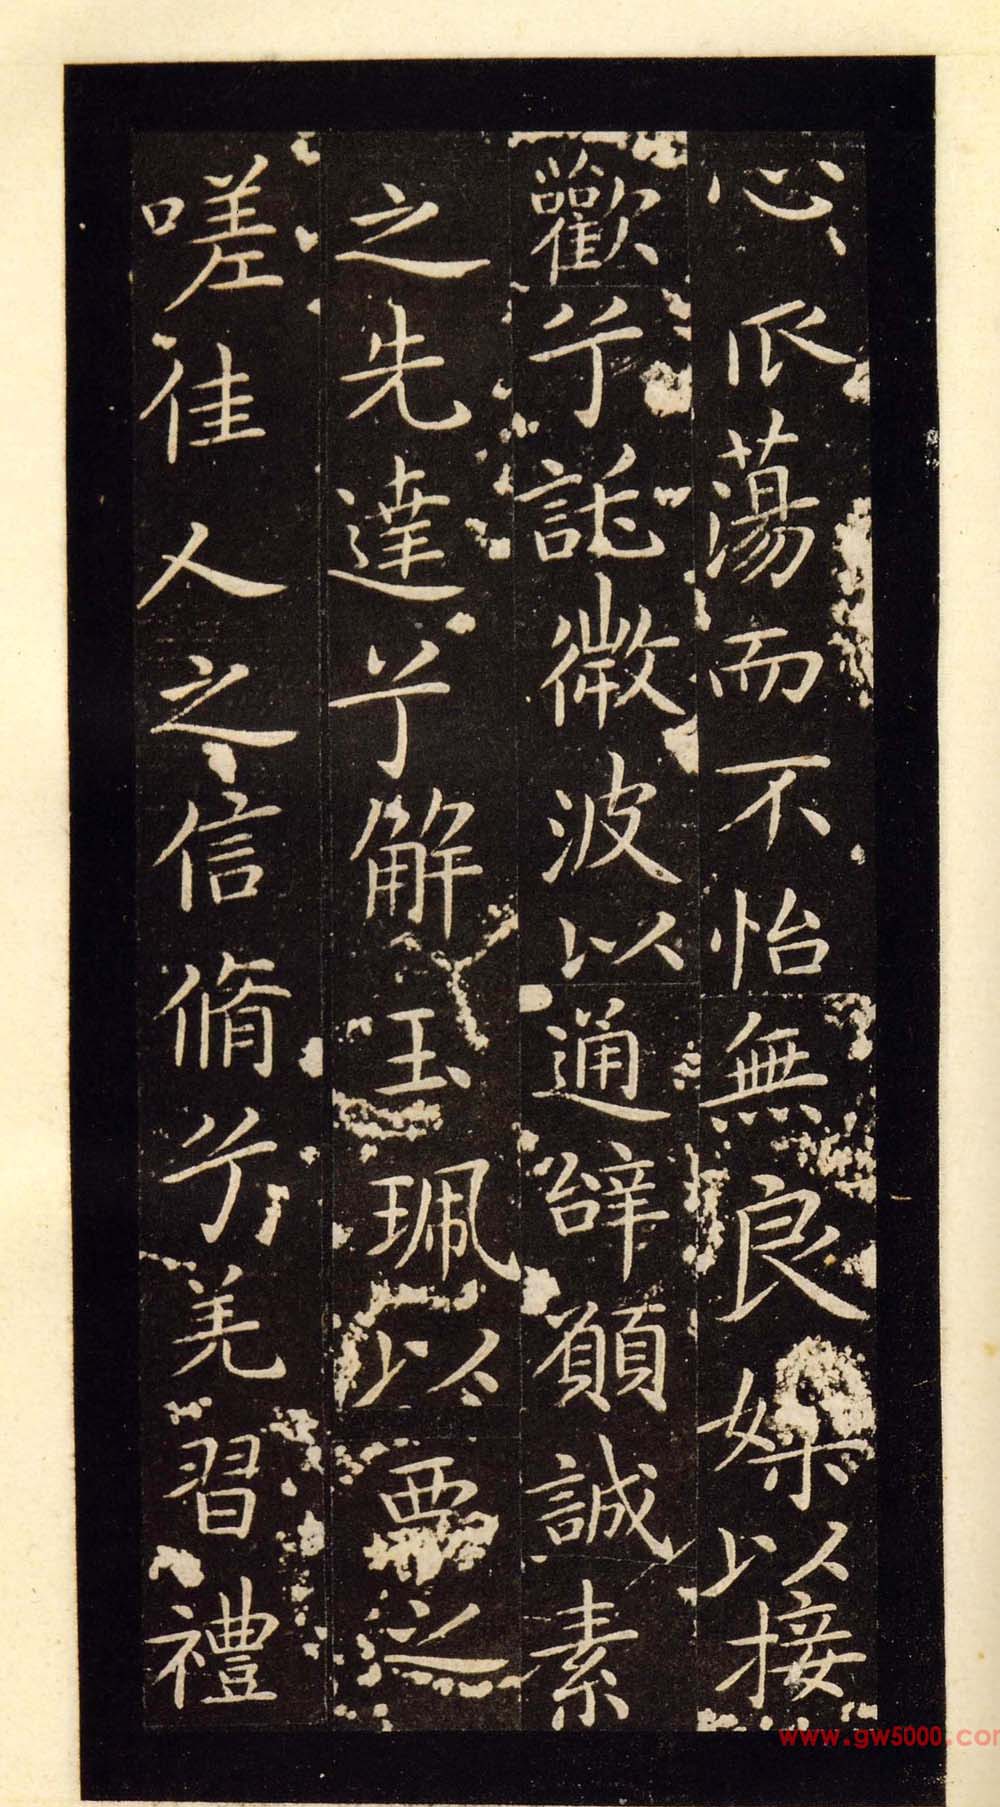 心𠂢蕩而不怡無良媒以接
歡兮託微波以通辭願誠素
之先達兮解玉珮以要之
嗟佳人之信脩兮羌習禮
www.gw5000.com